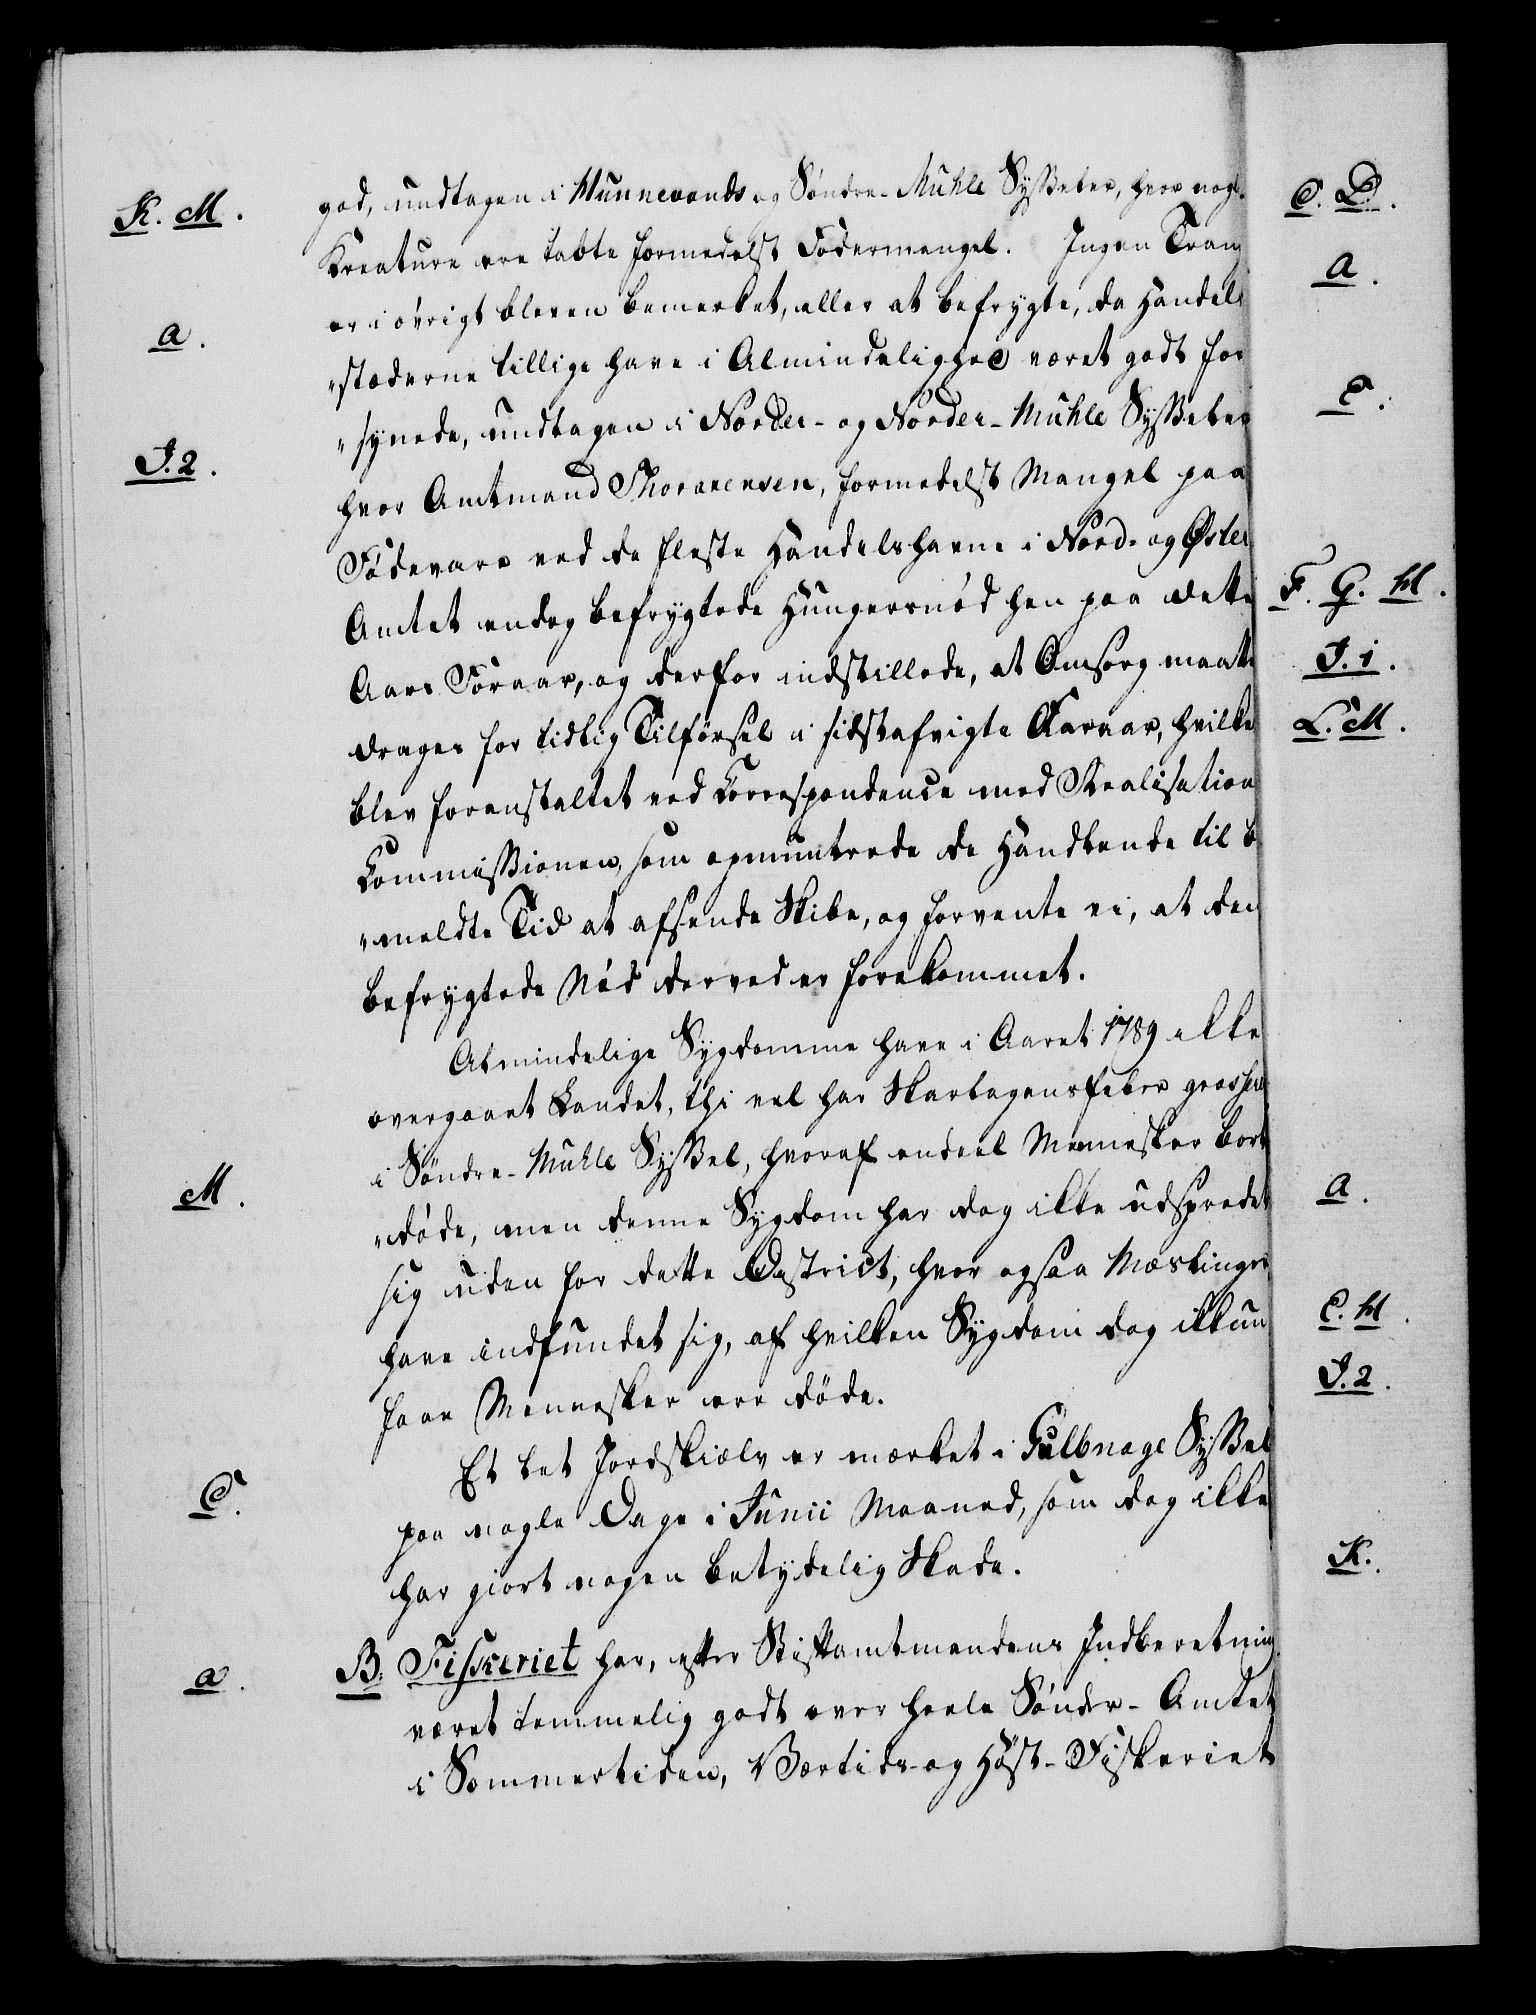 K. M.
god, undtagen i Hunnevands og Söndre-Muhle Sysseler, hvor nogle
Kreature ere tabte formedelst Fodermangel. Ingen Trang
er i övrigt bleven bemerket, eller at befrygte, da Handel-
a.
„stæderne tillige have i Almindelighed været godt for
„synede, undtagen i Norder- og Norder-Muhle Sysseler
J. 2.
hvor Amtmand Thorarensen, formedelst Mangel paa
Födevare ved de fleste Handelshavne i Nord- og Öster
Amtet endog befrygtede Hungersnöd hen paa dette
Aars Foraar, og derfor indstillede, at Omsorg maatte
drages for tidlig Tilförsel i sidstafvigte Foraar, hvilke
blev foranstaltet ved Correspondence med Realisation
Commissionen, som opmuntrede de Handlende til b
„meldte Tid at afsende Skibe, og forvente vi, at den
befrygtede Nöd derved er forekommet.
Almindelige Sygdomme have i Aaret 1789 ikke
overgaaet Landet, thi vel har Skarlagensfeber grasse
i Söndre-Muhle Syssel, hvoraf endeel Mennesker bort
M.
„döde, men denne Sygdom har dog ikke udspredet
sig uden for dette District, hvor ogsaa Mæslinger
have indfundet sig, af hvilken Sygdom dog ikkun
faae Mennesker ere döde.
Et let Jordskiælv er mærket i Gulbrage Syssel
C.
paa nogle Dage i Junii Maaned, som dog ikke
har giort nogen betydelig Skade.
B. Fiskeriet har, efter Stiftamtmandens Indberetning
a.
været temmelig godt over heele Sönder-Amtet
i Sommertiden, Vertids- og Höst-Fiskeriet
C. D.
a.
E.
F. G. H.
J. 1.
L. M.
a.
C. H.
J. 2.
K.